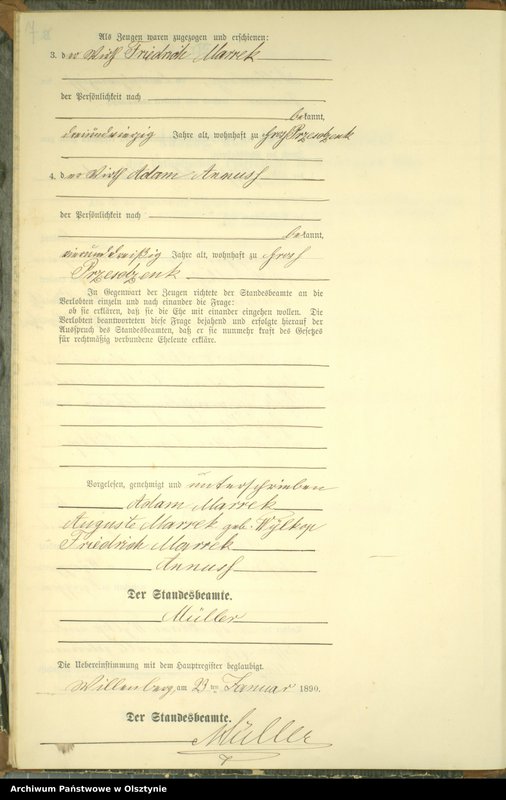 Als Zeugen waren zugezogen und erschienen:
3. der Wirth Friedrich Marrek
der Persönlichkeit nach
bekannt,
dreiundvierzig Jahre alt, wohnhaft zu Groß Przesdzenk
4. der Wirth Adam Annuß
der Persönlichkeit nach
bekannt,
vierunddreißig Jahre alt, wohnhaft zu Groß
Przesdzenk
In Gegenwart der Zeugen richtete der Standesbeamte an die
Verlobten einzeln und nach einander die Frage:
ob sie erklären, daß sie die Ehe mit einander eingehen wollen. Die
Verlobten beantworteten diese Frage bejahend und erfolgte hierauf der
Ausspruch des Standesbeamten, daß er sie nunmehr kraft des Gesetzes
für rechtmäßig verbundene Eheleute erkläre.
Vorgelesen, genehmigt und unterschrieben
Adam Marrek
Auguste Marrek geb. Wylkop
Friedrich Marrek
Annuß
Der Standesbeamte.
Müller
Die Uebereinstimmung mit dem Hauptregister beglaubigt.
Willenberg, am 23 ten Januar 1890.
Der Standesbeamte.
Müller
Archiwum Państwowe w Olsztynie